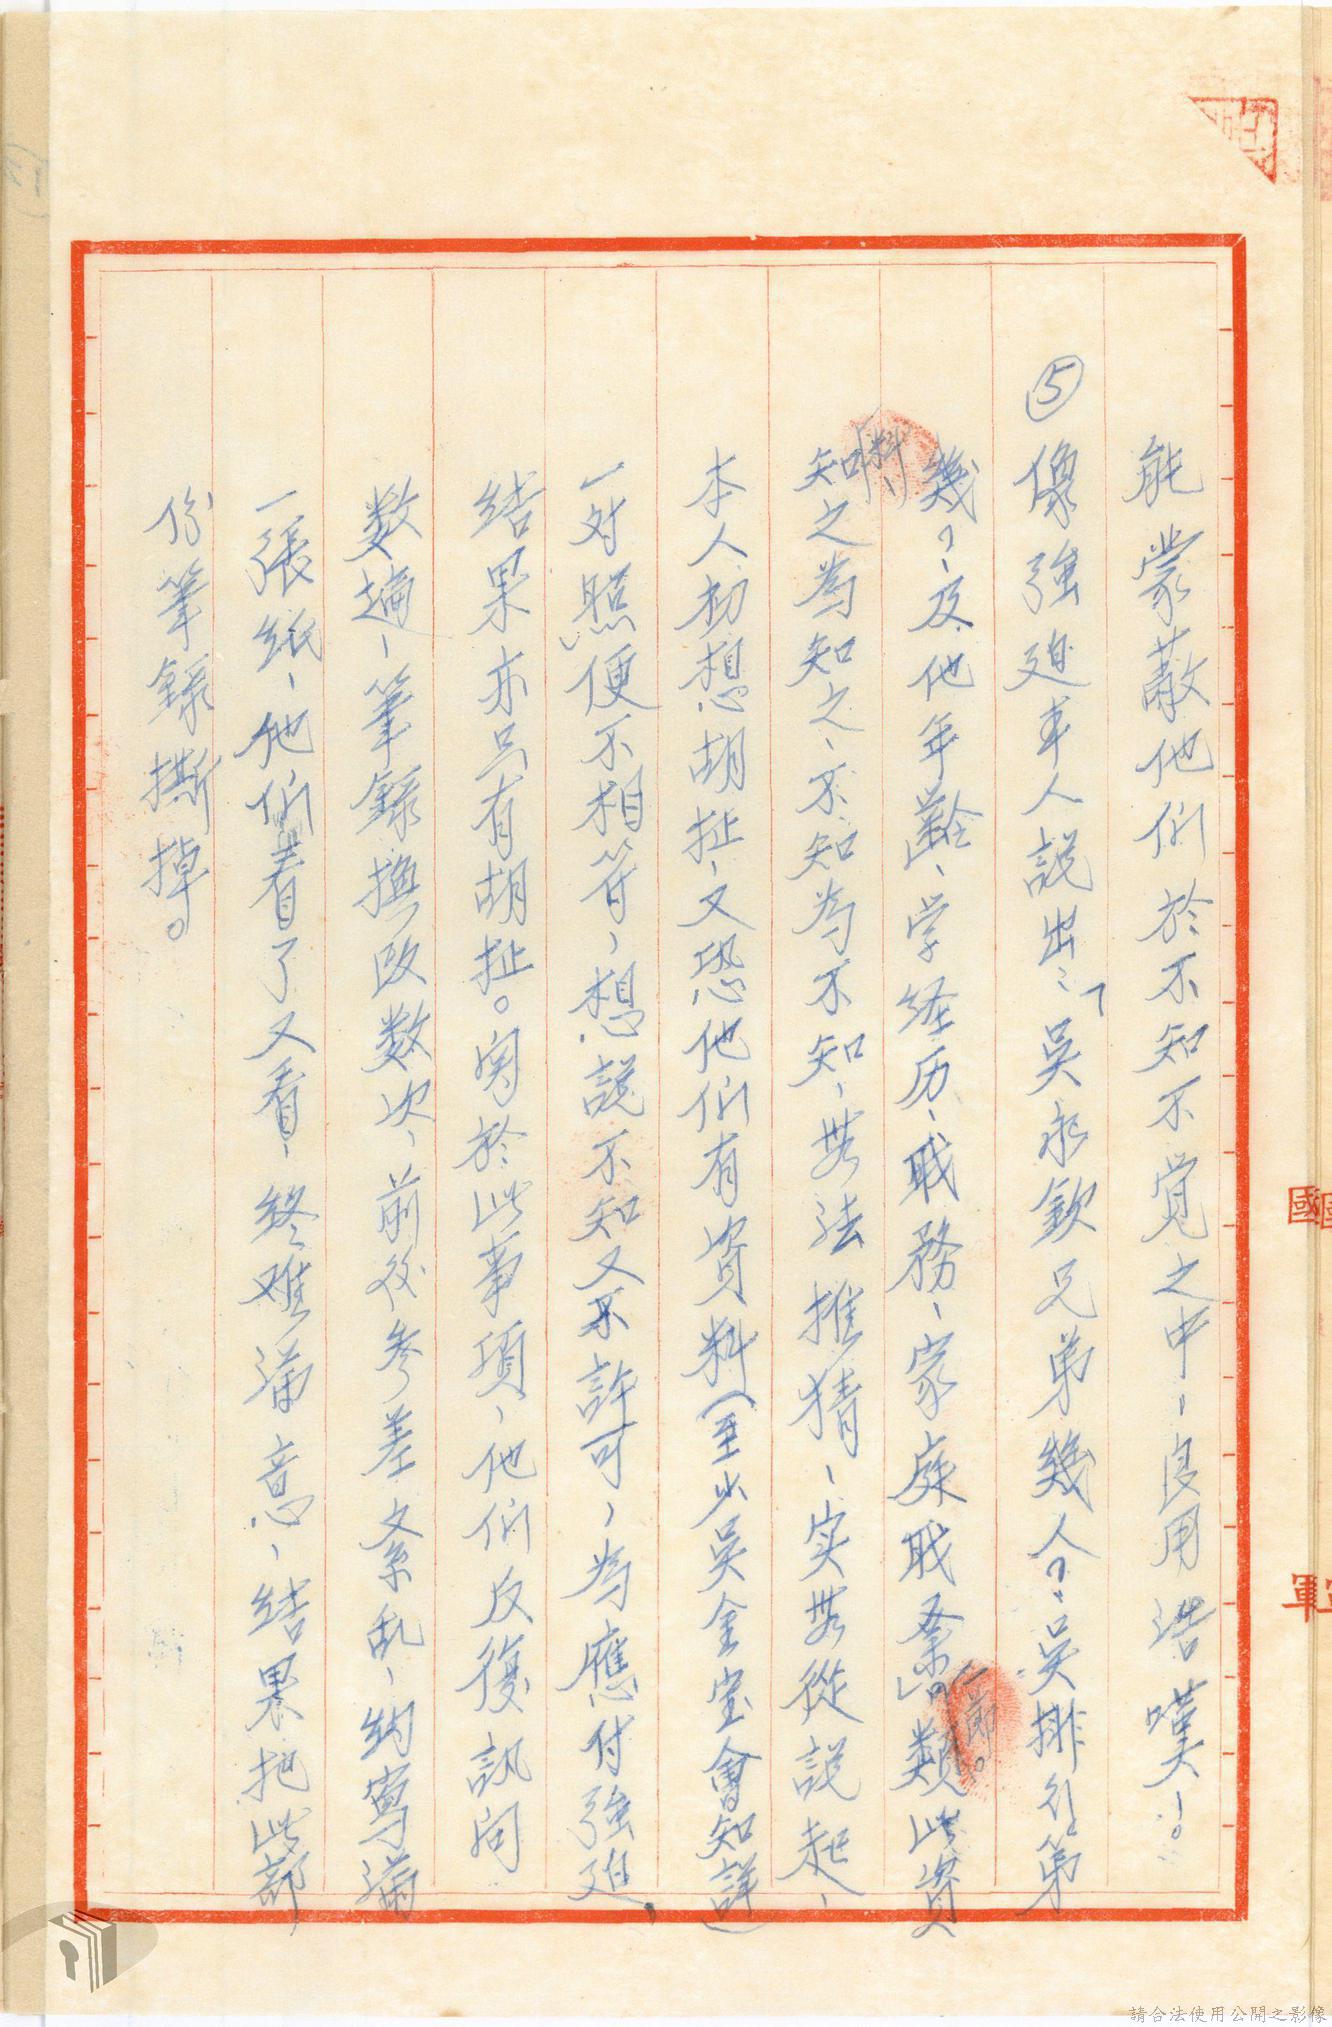 能蒙蔽他们於不知不覚之中、良用浩嘆!。
⑤像強迫本人說出:「吳永欽兄弟幾人?吳排行第
幾?、及他年齡、学経历、職務、家庭職業」類此資
料、一節。
知之為知之、不知為不知、無法推猜、实無從說起、
本人初想胡扯、又恐他们有資料(至少吳金宝會知詳)
一对照便不相符、想說不知又不許可、為應付強迫、
结果亦只有胡扯。関於此事項、他们反復訊问
数遍、筆錄撫改数次、前後参差紊乱、約寫滿
一張纸、他们看了又看、終难滿意、结果把此部
份筆錄撕掉。
國
軍
請合法使用公開之影像